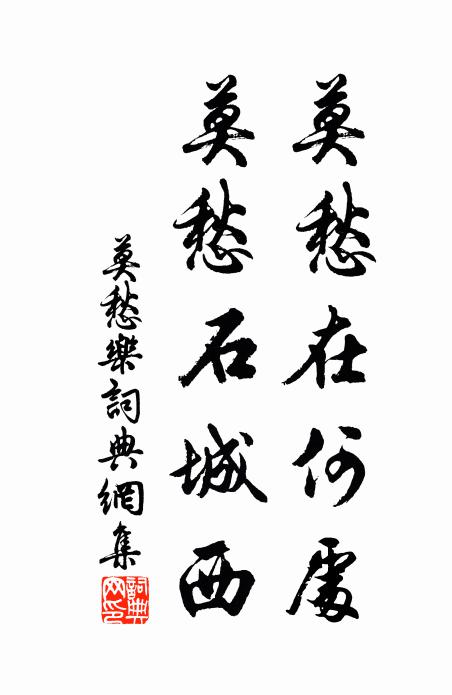 莫愁在何處
莫愁石城西
莫愁樂詞典網集
詞典網印